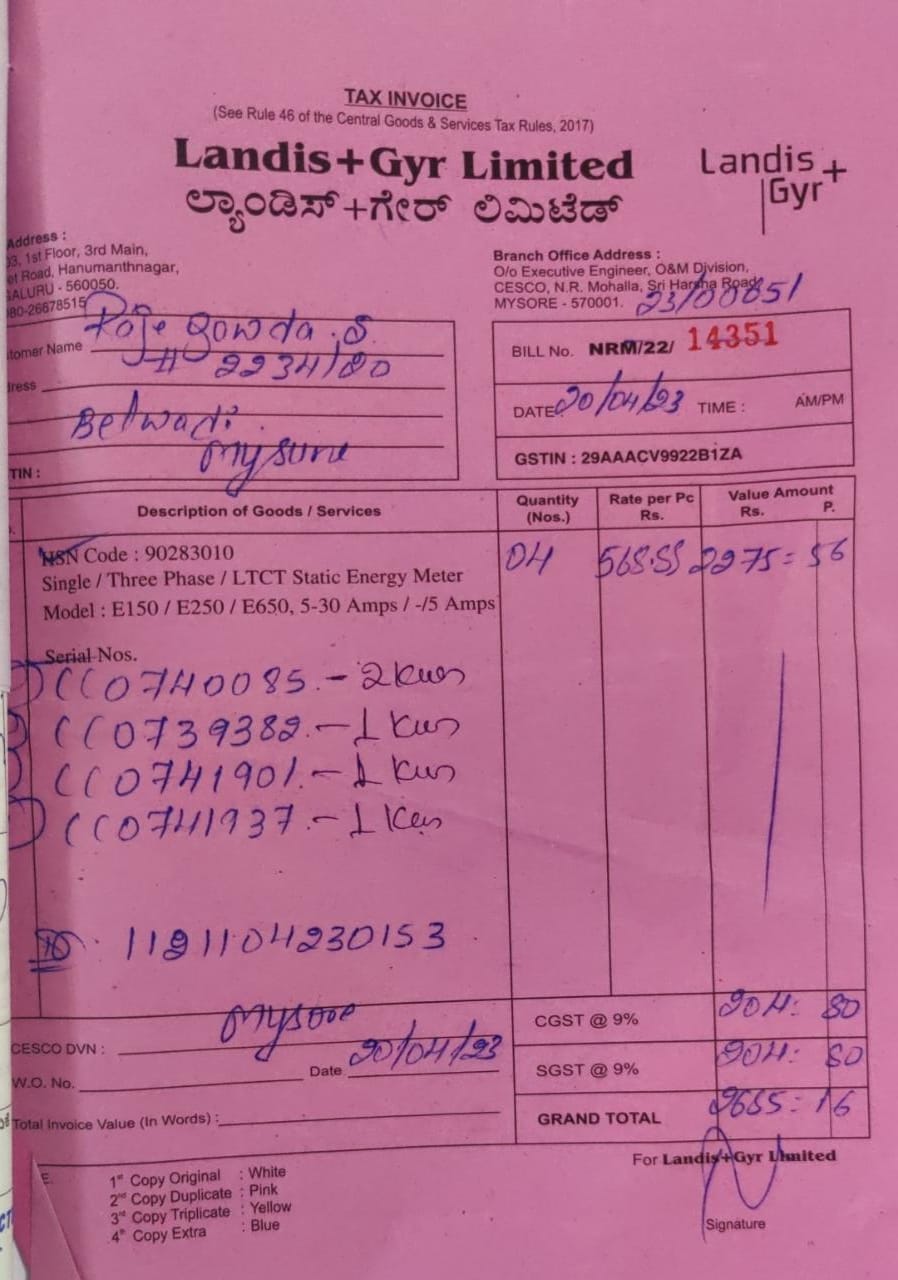 TAX INVOICE
(See Rule 46 of the Central Goods & Services Tax Rules, 2017)
Landis+Gyr Limited
ಲ್ಯಾಂಡಿಸ್+ಗೇರ್ ಲಿಮಿಟೆಡ್
Landis+
Gyr
Address :
1st Floor, 3rd Main,
Road, Hanumanthnagar,
560050.
080-26678515
Branch Office Address :
O/o Executive Engineer, O&M Division,
CESCO, N.R. Mohalla, Sri Harsha Road
MYSORE - 570001.
23/00851
Customer Name Raje Gowda .S
# 2234/80
Address
Belwadi
Mysure
TIN :
BILL No. NRM/22/ 14351
DATE 20/04/23 TIME : AM/PM
GSTIN : 29AAACV9922B1ZA
Description of Goods / Services Quantity (Nos.) Rate per Pc Rs. Value Amount Rs. P.
HSN Code : 90283010 04 568.89 2275=56
Single / Three Phase / LTCT Static Energy Meter
Model : E150 / E250 / E650, 5-30 Amps / -/5 Amps
Serial Nos.
CC0740085.-2kws
CC0739382.-1 kws
CC0741901.-1 kws
CC0741937.-1 kws
11211104230153
CGST @ 9% 204: 80
SGST @ 9% 204: 80
GRAND TOTAL 2685=16
CESCO DVN : Mysore
Date 20/04/23
W.O. No.
Total Invoice Value (In Words) :
For Landis+Gyr Limited
Signature
1st Copy Original : White
2nd Copy Duplicate : Pink
3rd Copy Triplicate : Yellow
4th Copy Extra : Blue